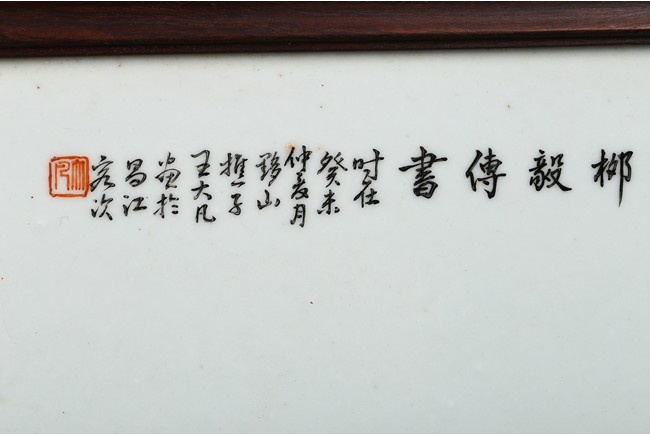 栁毅傳書
時在
癸未
仲夏月
黟山
樵子
王大凡
畫於
昌江
客次
大凡